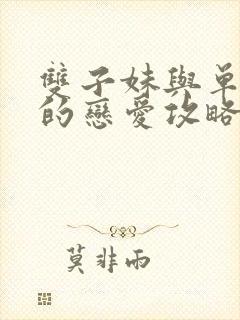 雙子妹與單
的戀愛攻略
莫非雨